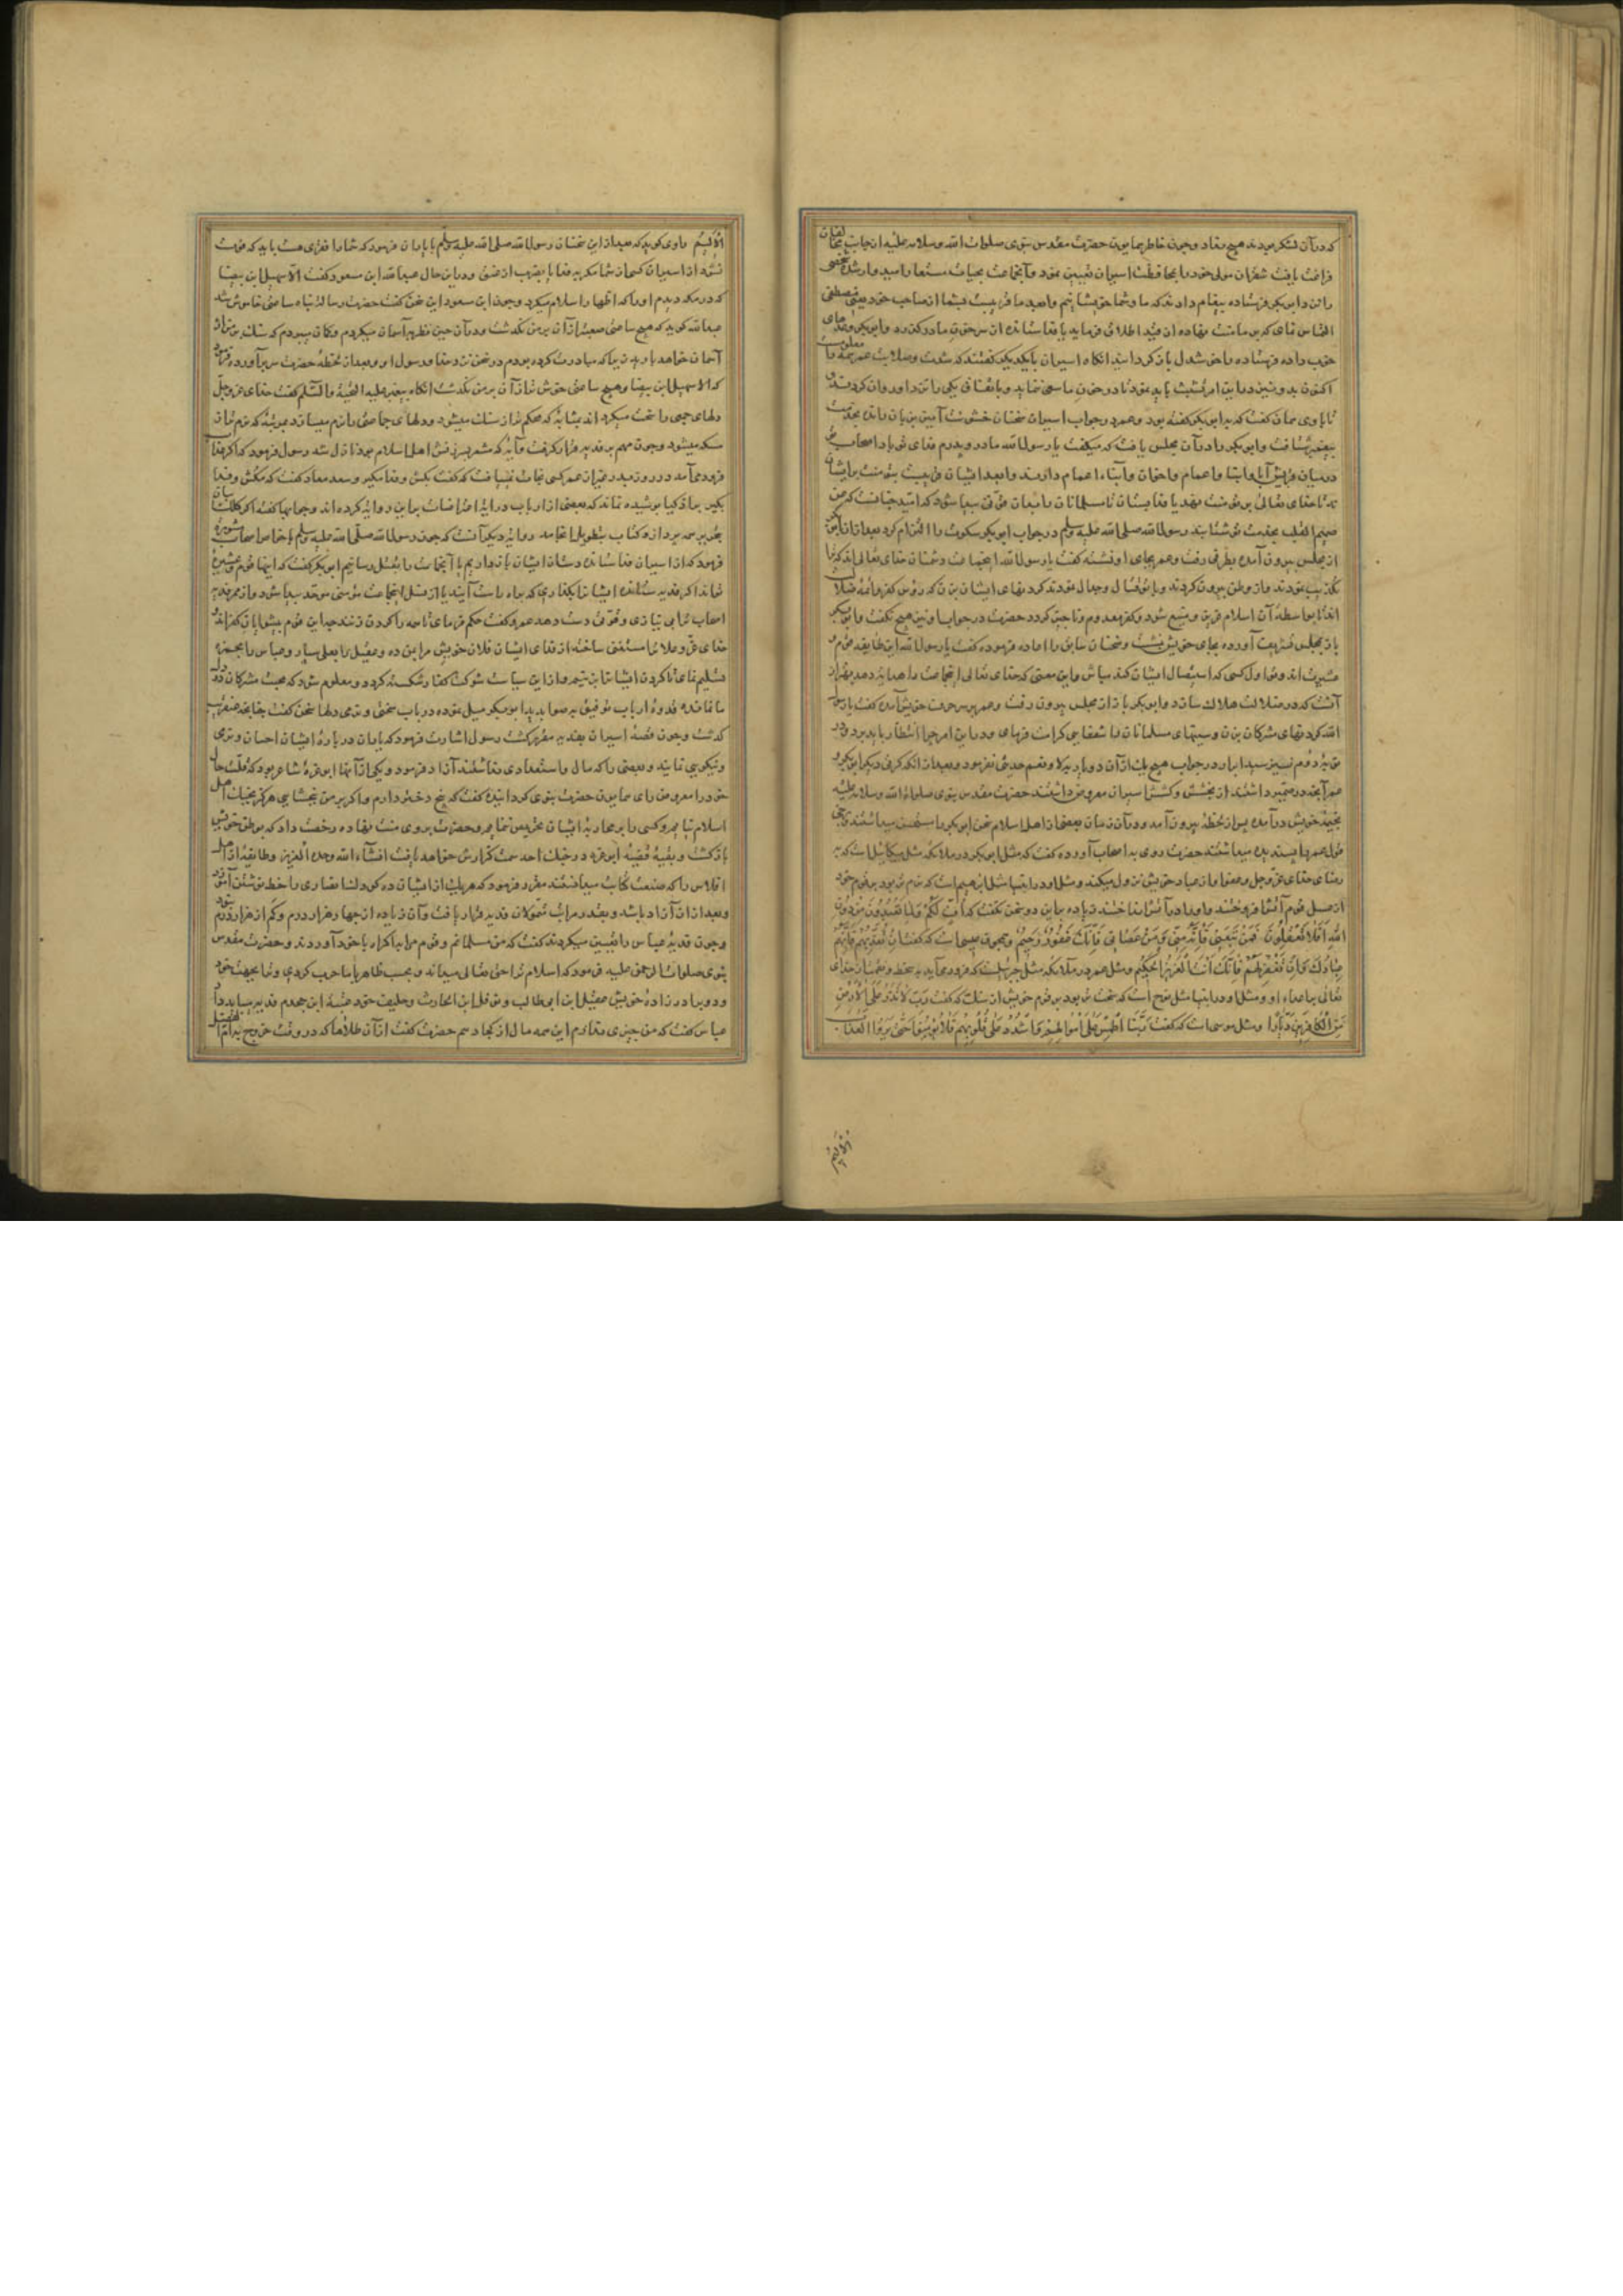 که در آن لشکر بودند هیچ نفاد و چون خاطر همایون حضرت مقدس نبوی صلوات الله وسلامه علیه از جانب مخالفان
فراغت یافت شقران مولی خود را بمحافظت اسیران تعیین نمود و آنجماعت بحیات مستعار امیدوار شده شخصی
را نزد ابوبکر فرستاده پیغام دادند که ما و شما خویشانیم و ابعد ما قریبست بشما از صاحب خود یعنی مصطفی
التماس نمای که بر ما منت نهاده از قید اطلاق فرماید یا فدا ستانده از سر خون ما درگذرد و ابوبکر وعدهای
خوب داده فرستاده را خوشدل بازگردانید آنگاه اسیران با یکدیگر گفتند که شدت و صلابت عمر همه را معلومست
اکنون بدو نیز در این امر تشبث باید نمود تا در خون ما سعی ننماید و باتفاق یکی را نزد او روان کردند
تا با وی همان گفت که با ابوبکر گفته بود و عمر در جواب اسیران سخنان خشونت آمیز بر زبان رانده بخدمت
پیغمبر شتافت و ابوبکر را در آن مجلس یافت که میگفت یا رسول الله مادر و پدرم فدای تو باد اصحاب
در میان قریش آبا و ابنا و اعمام و اخوان و ابناء اعمام دارند و ابعد ایشان قریبست بتو منت بر ایشان
نه تا خدای تعالی بر تو منت نهد یا فدا بستان تا مسلمانان را بدان قوتی پیدا شود که امید چنانست که من
صمیم القلب بخدمت تو شتابند رسول الله صلی الله علیه وسلم در جواب ابوبکر سکوت را التزام کرد بعد از آن ابوبکر
از مجلس بیرون آمده بطرفی رفت و عمر بجای او نشسته گفت یا رسول الله اینجماعت دشمنان خدای تعالی اند که ترا
تکذیب نمودند و از وطن بیرون کردند و با تو قتال و جدال نمودند گردنهای ایشان بزن که رؤس کفر و ائمه ضلال
اند تا بواسطه آن اسلام قوی و متسع شود و کفر معدوم و ناچیز گردد حضرت در جواب او نیز هیچ نگفت و ابوبکر
باز بمجلس تشریف آورده بجای خویش نشست و سخنان سابق را اعاده فرموده گفت یا رسول الله این طایفه قوم و
عشیرت اند تو اول کسی که استیصال ایشان کند مباش و این معنی که خدای تعالی اینجماعت را هدایت دهد بهتر از
آنست که در ضلالت هلاک سازد و ابوبکر باز از مجلس بیرون رفت و عمر بر سر حرف خویش آمده گفت یا رسول
الله گردنهای مشرکان بزن و سینهای مسلمانان را شفایی کرامت فرمای و در این امر چرا انتظار باید برد و در
مرتبه دوم نیز سید ابرار در جواب هیچ یک از آن دو یار
عمر آنچه در ضمیر داشتند از بخشش و کشش اسیران معروض داشتند حضرت مقدس نبوی صلوات الله وسلامه علیه
بخیمه خویش درآمده پس از لحظه بیرون آمد و در آن زمان بعضی از اهل اسلام سخن ابوبکر را مستحسن میداشتند و برخی
قول عمر را پسندیده میداشتند حضرت روی به اصحاب آورده گفت که مثل ابوبکر در ملائکه مثل میکائیل است که به
رضای خدای عز وجل و عفو او از عباد خویش نزول میکند و مثل او در انبیا مثل ابراهیم است که نرم تر بود بر قوم خود
از عسل قوم آتش افروختند و او را در آتش انداختند زیاده بر این دو سخن نگفت که اف لکم ولما تعبدون من دون
الله افلا تعقلون فمن تبعنی فانه منی ومن عصانی فانک غفور رحیم و همچون عیسی است که گفت ان تعذبهم فانهم
عبادک وان تغفر لهم فانک انت العزیز الحکیم و مثل عمر در ملائکه مثل جبرئیلست که فرود می‌آید به سخط و نقمت از خدای
تعالی بر اعداء او و مثل او در انبیا مثل نوح است که سخت تر بود بر قوم خویش از سنگ که گفت رب لا تذر علی الارض
من الکافرین دیارا و مثل موسی است که گفت ربنا اطمس علی اموالهم واشدد علی قلوبهم فلا یؤمنوا حتی یروا العذاب
الالیم
الالیم راوی گوید که بعد از این سخنان رسول الله صلی الله علیه وسلم با یاران فرمود که شما را فقری هست باید که فوت
نشود از اسیران کسی از شما مگر به فدا یا بضرب عنق و در این حال عبدالله ابن مسعود گفت الا سهیل ابن بیضا
که در مکه دیدم او را که اظهار اسلام میکرد و چون ابن مسعود این سخن گفت حضرت رسالة پناه ساعتی خاموش شد
عبدالله گوید که هیچ ساعتی صعبتر از آن بر من نگذشت و در آن حین نظر بر آسمان میکردم و گمان میبردم که سنگ بر من از
آسمان خواهد بارید زیرا که مبادرت کرده بودم در سخن نزد خدا و رسول او و بعد از لحظه حضرت سر برآورده فرمود
که الا سهیل ابن بیضا و هیچ ساعتی خوش تر از آن بر من نگذشت آنگاه پیغمبر علیه التحیة والسلم گفت خدای عز وجل
دلهای جمعی را سخت میگرداند بمثابه که محکم تر از سنگ میشود و دلهای جماعتی را نرم میسازد بمرتبه که نرم تر از
مسکه میشود و چون مهم بر فدیه قرار گرفت و آیه که مشعر بسرزنش اهل اسلام بود نازل شد رسول فرمود که اگر عذاب
فرود می‌آمد در روز بدر غیر از عمر کسی نجات نمییافت که گفت بکش و فدا مگیر و سعد معاذ گفت که بکش و فدا
مگیر بر اذکیا پوشیده نماند که بعضی از ارباب درایة اعتراضات بر این روایة کرده اند و جوابها گفته
روایة دیگر آنست که چون رسول الله صلی الله علیه وسلم با خواص اصحاب مشورة
فرمود که از اسیران فدا ستانده دست از ایشان باز داریم یا آنجماعت را بقتل رسانیم ابوبکر گفت که اینها قوم و عشیرة
تواند اگر فدیه ستانده ایشان را بگذاری که براه راست آیند یا از نسل اینجماعت مؤمنی موحد پیدا شود و از ممر فدیه
اصحاب ترا بی نیازی و قوتی دست دهد عمر گفت حکم فرمای تا همه را گردن زنند چه این قوم پیشوایان کفراند و
خدای عز وعلا ترا مستغنی ساخته از فدای ایشان فلان خویش مرا بمن ده و عقیل را بعلی سپار و عباس را بحمزه
تسلیم نمای تا گردن ایشان را بزنیم و از این سیاست شوکت کفار شکسته گردد و معلوم شود که محبت مشرکان در دل
ما نمانده
گذشت و چون قصه اسیران بفدیه مقرر گشت رسول اشارت فرمود که یاران در باره ایشان احسان و نرمی
و نیکویی نمایند و بعضی را که مال و استعدادی نداشتند آزاد فرمود و یکی از آنها ابوعزه شاعر بود که قلت حال
خود را معروض رای همایون حضرت نبوی گردانیده گفت که پنج دختر دارم و اگر بر من ببخشایی هرگز بجنگ اهل
اسلام نیایم و کسی را بر محاربه ایشان تحریص ننمایم و حضرت بر وی منت نهاده رخصت داد که بوطن خویش
بازگشت و بقیه قصه ابوعزه در جنگ احد سمت گزارش خواهد یافت انشاء الله وحده العزیز و طایفه از اهل
افلاس را که صنعت کتابت میدانستند مقرر فرمود که هر یک از ایشان ده کودک انصاری را خط نوشتن آموزد
و بعد از آن آزاد باشد و بقدر مراتب تمولشان فدیه قرار یافت و آن زیاده از چهار هزار درم و کم از هزار درم نبود
و چون فدیه عباس را تعیین میکردند گفت که من مسلمانم و قوم مرا به اکراه با خود آوردند و حضرت مقدس
نبوی صلوات الرحمن علیه فرمود که اسلام ترا حق تعالی میداند و بحسب ظاهر با ما حرب کردی و ترا بجهت خود
و دو برادر زاده خویش عقیل ابن ابی طالب و نوفل ابن الحارث و حلیف خود عتبه ابن جحدم فدیه میباید داد
عباس گفت که من چیزی ندارم این همه مال از کجا دهم حضرت گفت از آن طلاها که در وقت خروج به ام الفضل